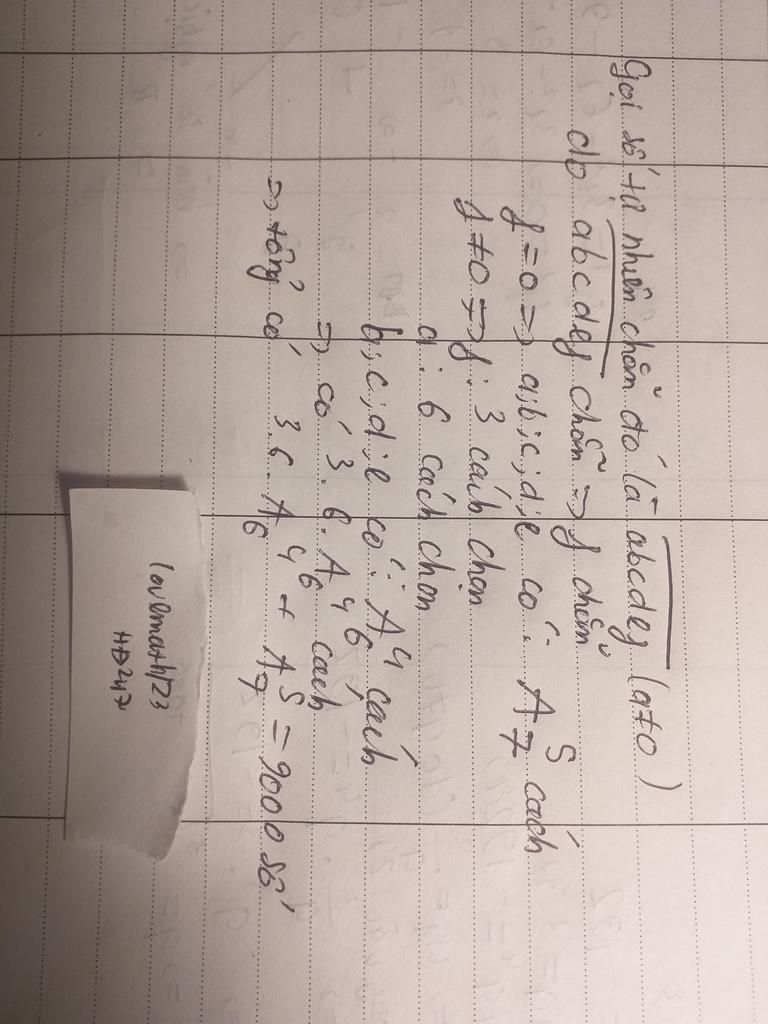 Gọi số tự nhiên chẵn đó là abcdef (a≠0)
do abcdef chẵn => f chẵn
f = 0 => a;b;c;d;e có: A⁵₇ cách
f ≠ 0 => f: 3 cách chọn
a: 6 cách chọn
b;c;d;e có: A⁴₆ cách
=> có 3.6.A⁴₆ cách
=> tổng có 3.6.A⁴₆ + A⁵₇ = 9000 số
lovemath123
HD247